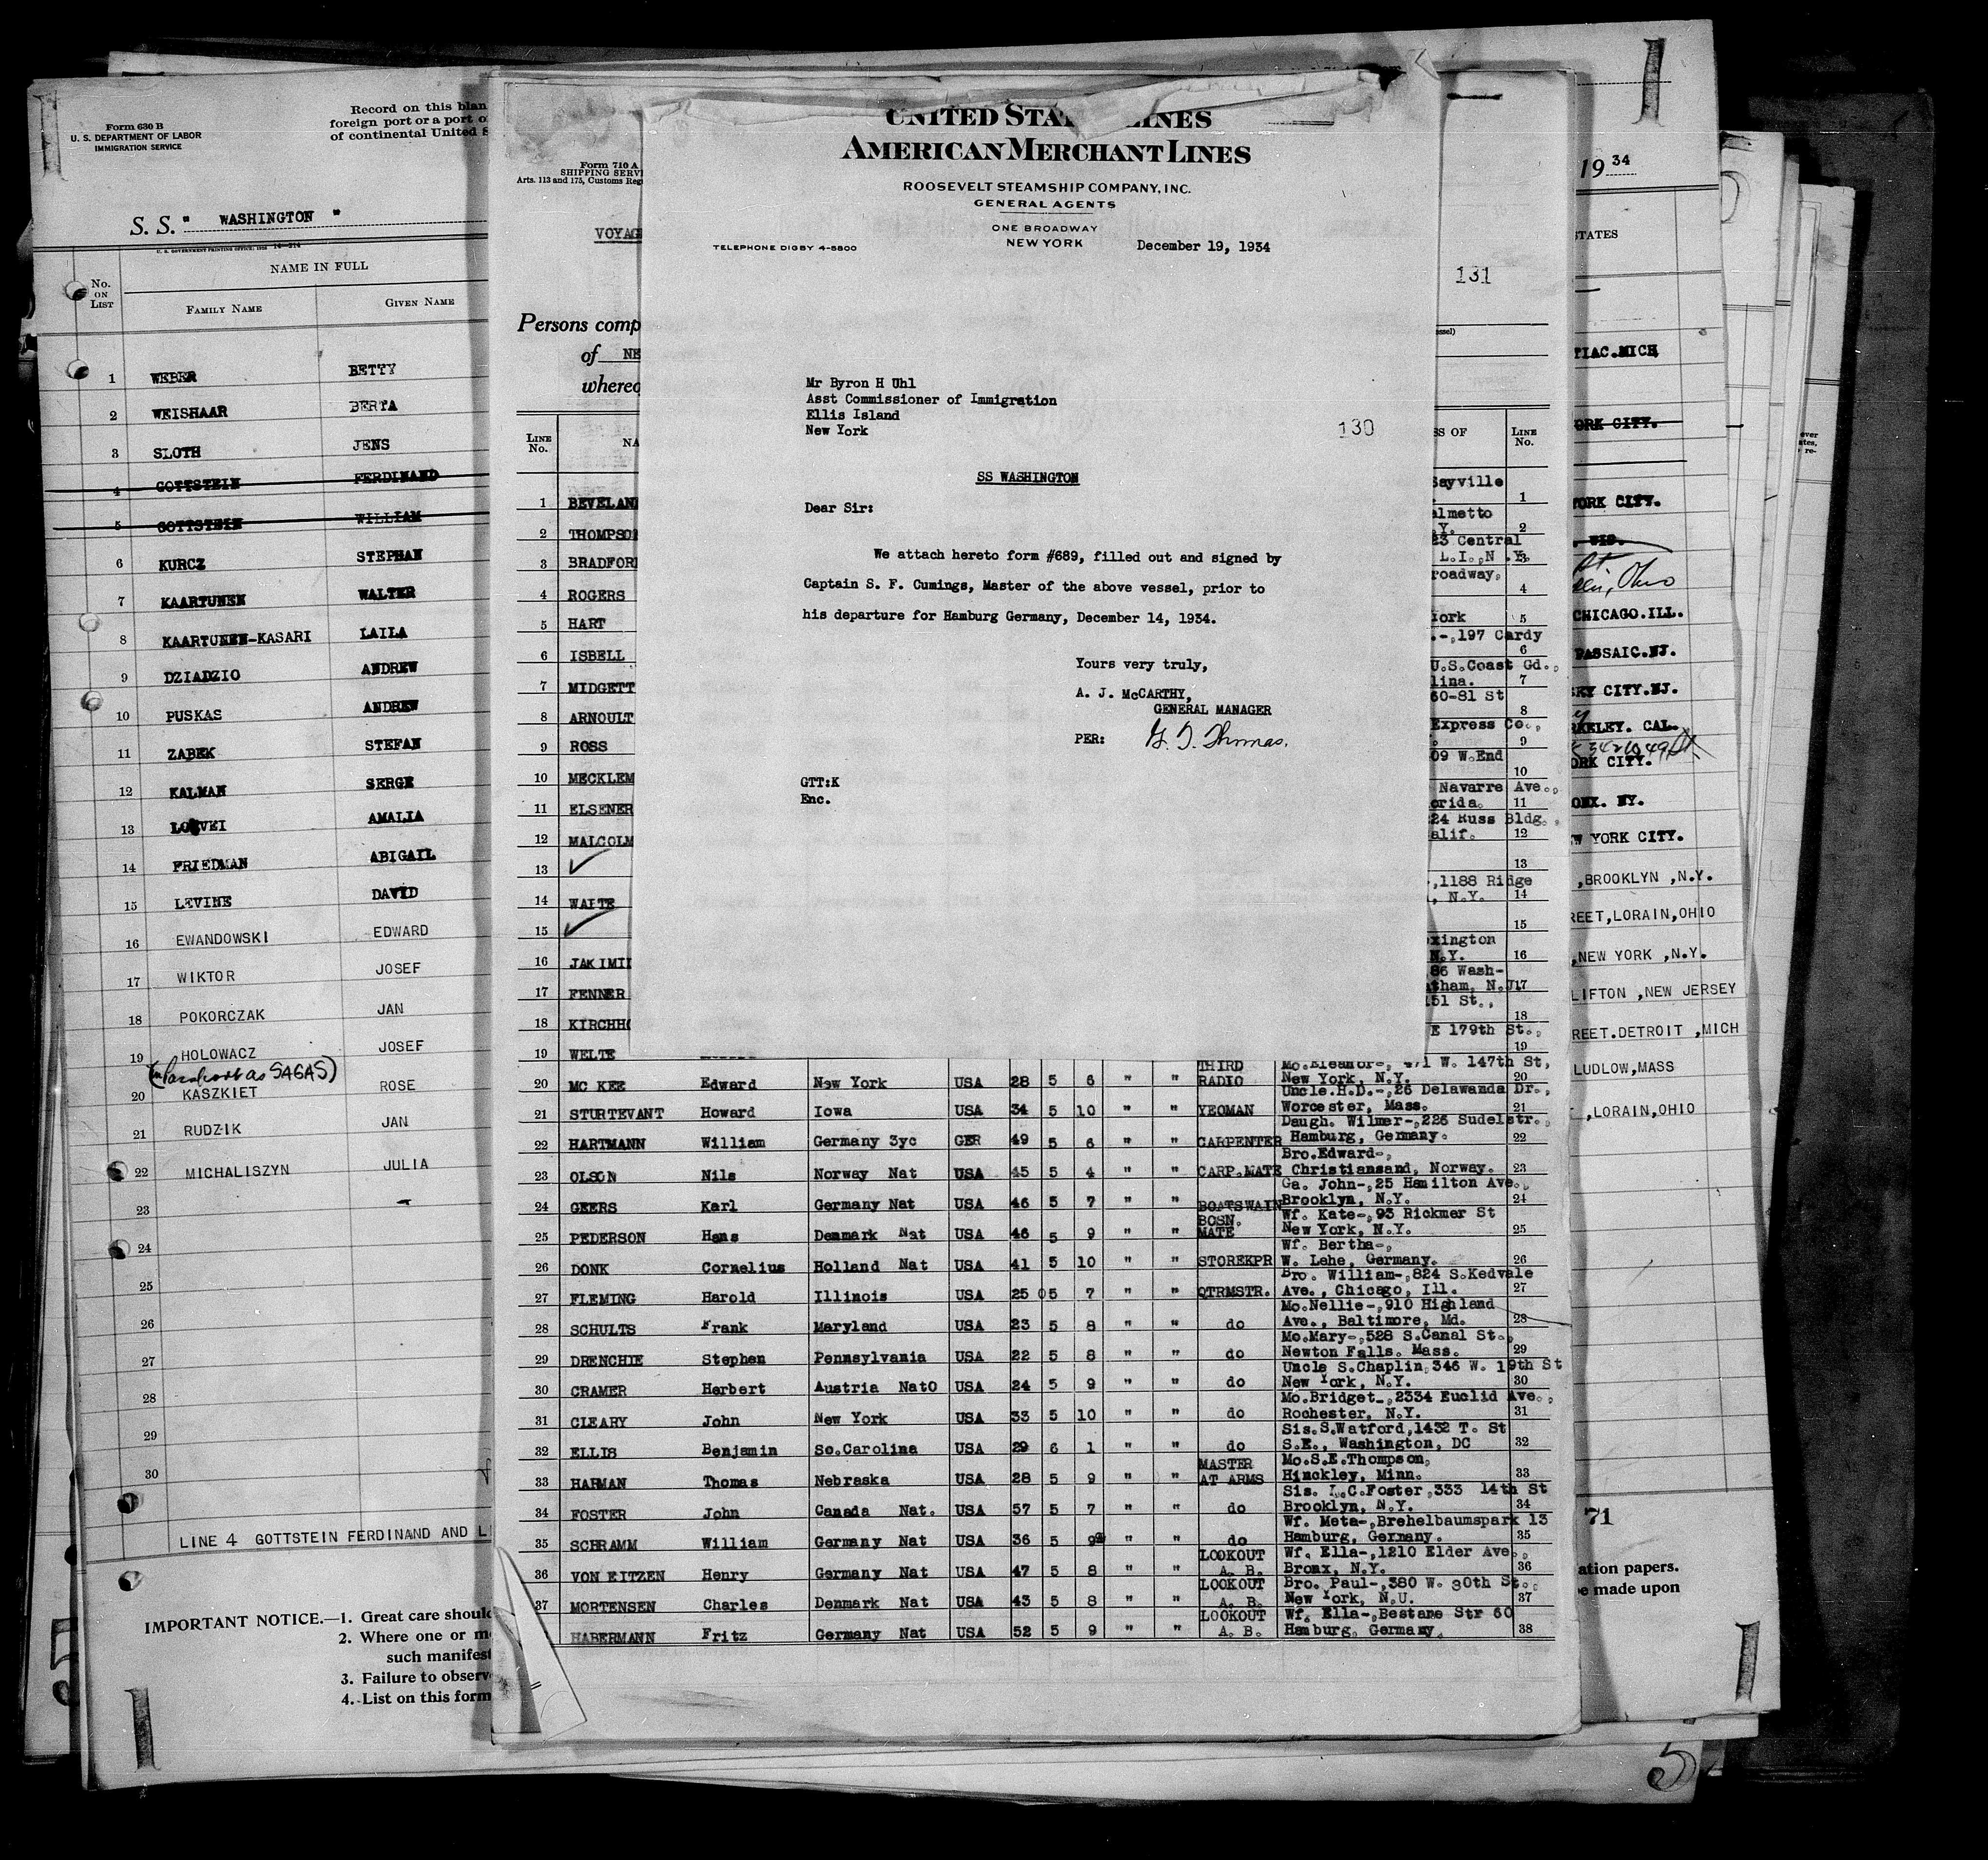 Form 630 B
U. S. DEPARTMENT OF LABOR
IMMIGRATION SERVICE
Record on this blan
foreign port or a port o
of continental United S
S. S. " WASHINGTON "
No. ON LIST
NAME IN FULL
FAMILY NAME GIVEN NAME
1 WEBER BETTY
2 WEISHAAR BERTA
3 SLOTH JENS
4 GOTTSTEIN FERDINAND
5 GOTTSTEIN WILLIAM
6 KURCZ STEPHAN
7 KAARTUNEN WALTER
8 KAARTUNEN-KASARI LAILA
9 DZIADZIO ANDREW
10 PUSKAS ANDREW
11 ZABEK STEFAN
12 KALMAN SERGE
13 AMALIA
14 FRIEDMAN ABIGAIL
15 LEVINE DAVID
16 EWANDOWSKI EDWARD
17 WIKTOR JOSEF
18 POKORCZAK JAN
19 HOLOWACZ JOSEF
as SAGAS)
20 KASZKIET ROSE
21 RUDZIK JAN
22 MICHALISZYN JULIA
23
24
25
26
27
28
29
30
LINE 4 GOTTSTEIN FERDINAND AND L
IMPORTANT NOTICE.—1. Great care shoul
2. Where one or m
such manifest
3. Failure to observ
4. List on this form
5
Form 710 A
SHIPPING SERV
Arts. 113 and 175, Customs Reg
VOYAG
131
Persons comp
of NE
where
LINE No. NA SS OF LINE No.
1 BEVELAN Sayville 1
2 THOMPSO almetto
Y. 2
3 BRADFOR 23 Central
L.I.,N.Y. 3
4 ROGERS roadway, 4
5 HART York 5
6 ISBELL -,197 Cardy 6
7 MIDGETT U.S.Coast Gd.,
lina. 7
8 ARNOULT 60-81 St 8
9 ROSS Express Co., 9
10 MECKLEM 09 W.End 10
11 ELSENER Navarre Ave.,
orida. 11
12 MALCOLM 24 Russ Bldg.,
alif. 12
13 13
14 WAITE ,1188 Ridge
, N.Y. 14
15 15
16 JAKIMI xington
N.Y. 16
17 FENNER 86 Wash-
tham, N.J 17
18 KIRCHH 151 St., 18
19 WELTE E 179th St., 19
20 MC KEE Edward New York USA 28 5 6 " " THIRD RADIO Mo.Eleanor-, W. 147th St,
New York, N.Y. 20
21 STURTEVANT Howard Iowa USA 34 5 10 " " YEOMAN Uncle.H.D.-,26 Delawanda Dr.,
Worcester, Mass. 21
22 HARTMANN William Germany 3yc GER 49 5 6 " " CARPENTER Daugh. Wilmer-,226 Sudelstr.,
Hamburg, Germany. 22
23 OLSON Nils Norway Nat USA 45 5 4 " " CARP.MATE Bro.Edward-,
Christiansand, Norway. 23
24 GEERS Karl Germany Nat USA 46 5 7 " " BOATSWAIN Ga. John-,25 Hamilton Ave.,
Brooklyn, N.Y. 24
25 PEDERSON Hans Denmark Nat USA 46 5 9 " " BOSN. MATE Wf. Kate-,93 Rickmer St
New York, N.Y. 25
26 DONK Cornelius Holland Nat USA 41 5 10 " " STOREKPR Wf. Bertha-,
W. Lehe, Germany. 26
27 FLEMING Harold Illinois USA 25 5 7 " " QTRMSTR. Bro. William-,824 S.Kedvale
Ave., Chicago, Ill. 27
28 SCHULTS Frank Maryland USA 23 5 8 " " do Mo.Nellie-,910 Highland
Ave., Baltimore, Md. 28
29 DRENCHIE Stephen Pennsylvania USA 22 5 8 " " do Mo.Mary-,528 S.Canal St.,
Newton Falls. Mass. 29
30 CRAMER Herbert Austria NatO USA 24 5 9 " " do Uncle S.Chaplin,346 W. 19th St
New York, N.Y. 30
31 CLEARY John New York USA 33 5 10 " " do Mo.Bridget-,2334 Euclid Ave.,
Rochester, N.Y. 31
32 ELLIS Benjamin So.Carolina USA 29 6 1 " " do Sis.S.Watford,1432 T. St
S.E., Washington, DC 32
33 HARMAN Thomas Nebraska USA 28 5 9 " " MASTER AT ARMS Mo.S.E.Thompson,
Hinckley, Minn. 33
34 FOSTER John Canada Nat. USA 57 5 7 " " do Sis. L.C.Foster,333 14th St
Brooklyn, N.Y. 34
35 SCHRAMM William Germany Nat USA 36 5 9 " " do Wf. Meta-,Brehelbaumspark 13
Hamburg, Germany. 35
36 VON EITZEN Henry Germany Nat USA 47 5 8 " " LOOKOUT A. B. Wf. Ella-,1210 Elder Ave.,
Bronx, N.Y. 36
37 MORTENSEN Charles Denmark Nat USA 43 5 8 " " LOOKOUT A. B. Bro. Paul-,380 W. 30th St.,
New York, N.U. 37
HABERMANN Fritz Germany Nat USA 52 5 9 " " LOOKOUT A. B. Wf. Ella-,Bestane Str 60
Hamburg, Germany. 38
UNITED STA LINES
AMERICAN MERCHANT LINES
ROOSEVELT STEAMSHIP COMPANY, INC.
GENERAL AGENTS
ONE BROADWAY
NEW YORK
TELEPHONE DIGBY 4-5800
December 19, 1934
Mr Byron H Uhl
Asst Commissioner of Immigration
Ellis Island
New York
130
SS WASHINGTON
Dear Sir:
We attach hereto form #689, filled out and signed by
Captain S. F. Cumings, Master of the above vessel, prior to
his departure for Hamburg Germany, December 14, 1934.
Yours very truly,
A. J. McCARTHY,
GENERAL MANAGER
PER: G. T. Thomas.
GTT:K
Enc.
1934
STATES
TIAC.MICH
ORK CITY.
YORK CITY.
, WIS.
Ohio
CHICAGO.ILL.
PASSAIC.NJ.
CITY.NJ.
KELEY. CAL.
ORK CITY.
ONX. NY.
W YORK CITY.
,BROOKLYN ,N.Y.
REET,LORAIN,OHIO
,NEW YORK ,N.Y.
LIFTON ,NEW JERSEY
REET.DETROIT ,MICH
LUDLOW,MASS
,LORAIN,OHIO
71
ation papers.
e made upon
5